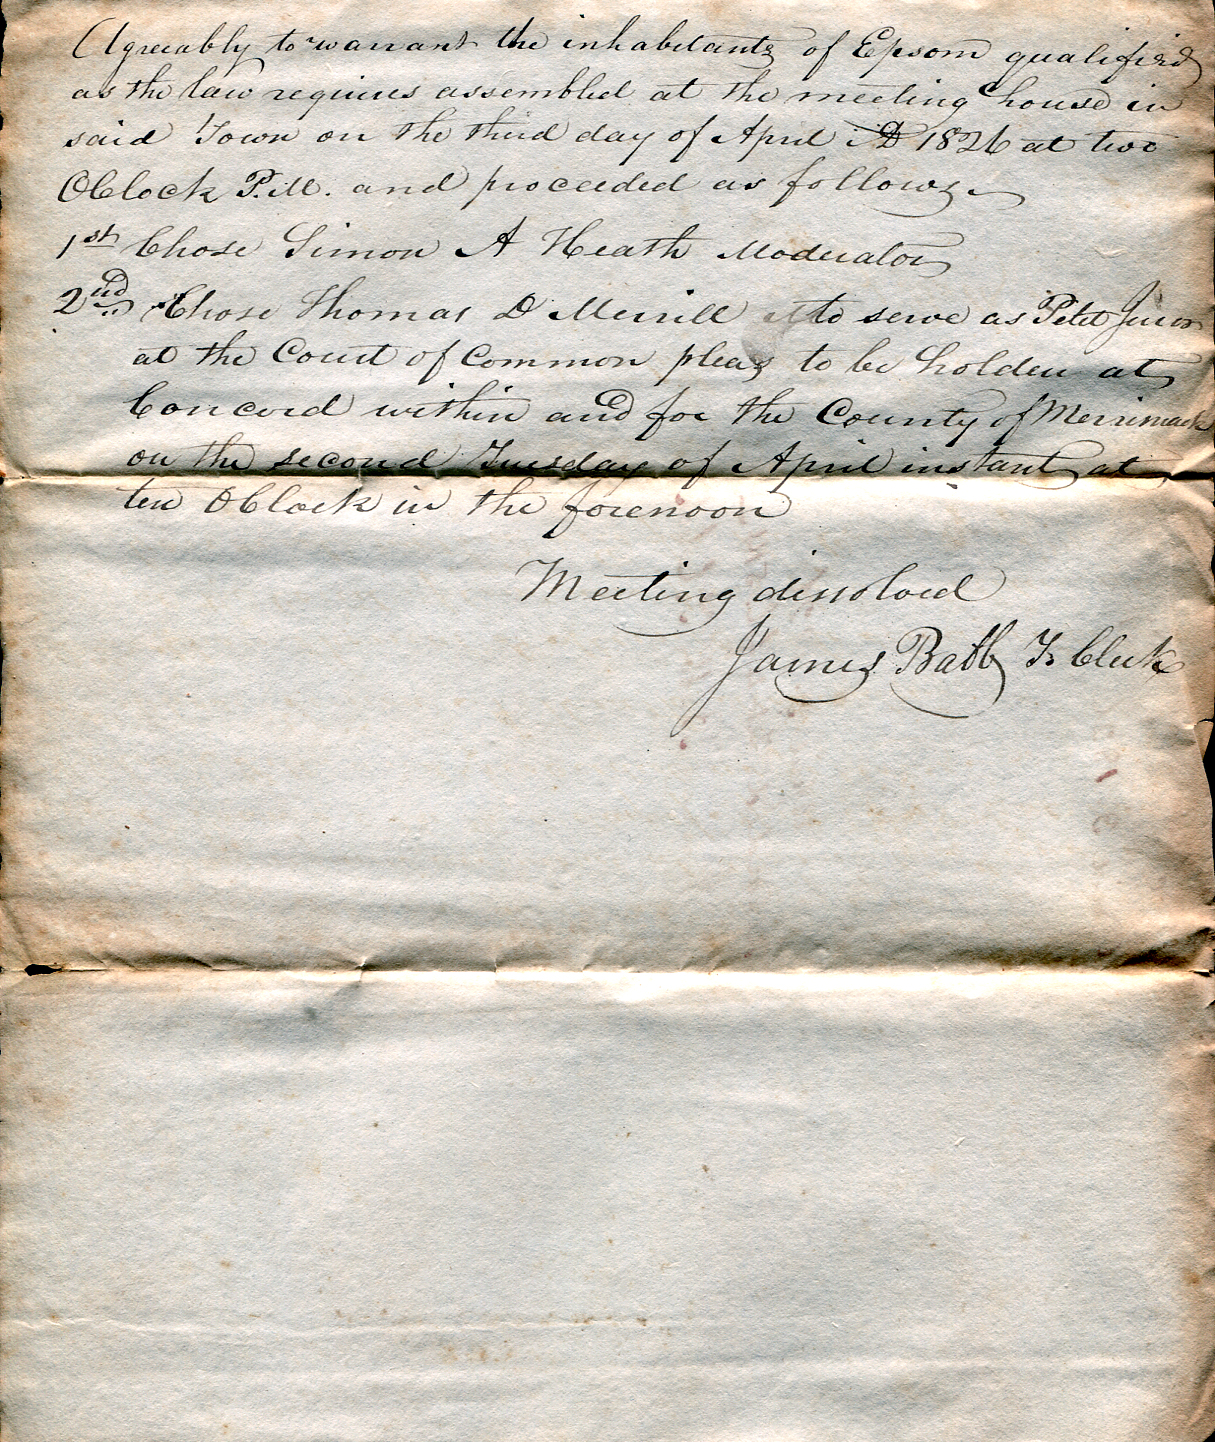 Agreeably to warrant the inhabitants of Epsom qualified
as the law requires assembled at the meeting house in
said Town on the third day of April AD 1826 at two
OClock P.M. and proceeded as follows
1st Chose Simon A Heath Moderator
2nd Chose Thomas D Merrill to serve as Petit Juror
at the Court of Common pleas to be holden at
Concord within and for the County of Merrimack
on the second Tuesday of April instant at
ten OClock in the forenoon
Meeting dissolved
James Babb T Clerk